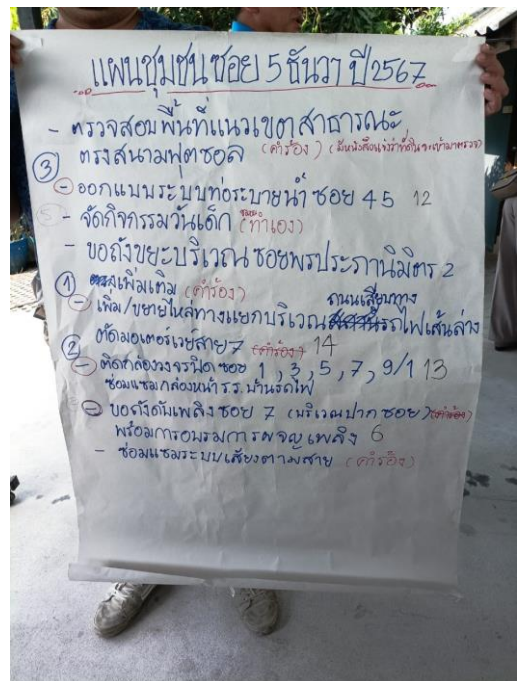 แผนชุมชนซอย 5 ธันวา ปี 2567
- ตรวจสอบพื้นที่แนวเขตสาธารณะ
ตรงสนามฟุตซอล (คำร้อง)
③
- ออกแบบระบบท่อระบายน้ำ ซอย 4 5 12
- จัดกิจกรรมวันเด็ก (ทำเอง)
- ขอถังขยะบริเวณ ซอยพรประภานิมิตร 2
เพิ่มเติม (คำร้อง)
① ถนนเลียบทาง
- เพิ่ม/ขยายไหล่ทางแยกบริเวณรถไฟเส้นล่าง
ตัดมอเตอร์เวย์สาย 7 (คำร้อง) 14
②
- ติดกล้องวงจรปิด ซอย 1, 3, 5, 7, 9/1 13
ซ่อมแซมกล้องหน้า ร.ร. บ้านรถไฟ
- ขอถังดับเพลิง ซอย 7 (บริเวณปากซอย) (คำร้อง)
พร้อมการอบรมการผจญเพลิง 6
- ซ่อมแซมระบบเสียงตามสาย (คำร้อง)